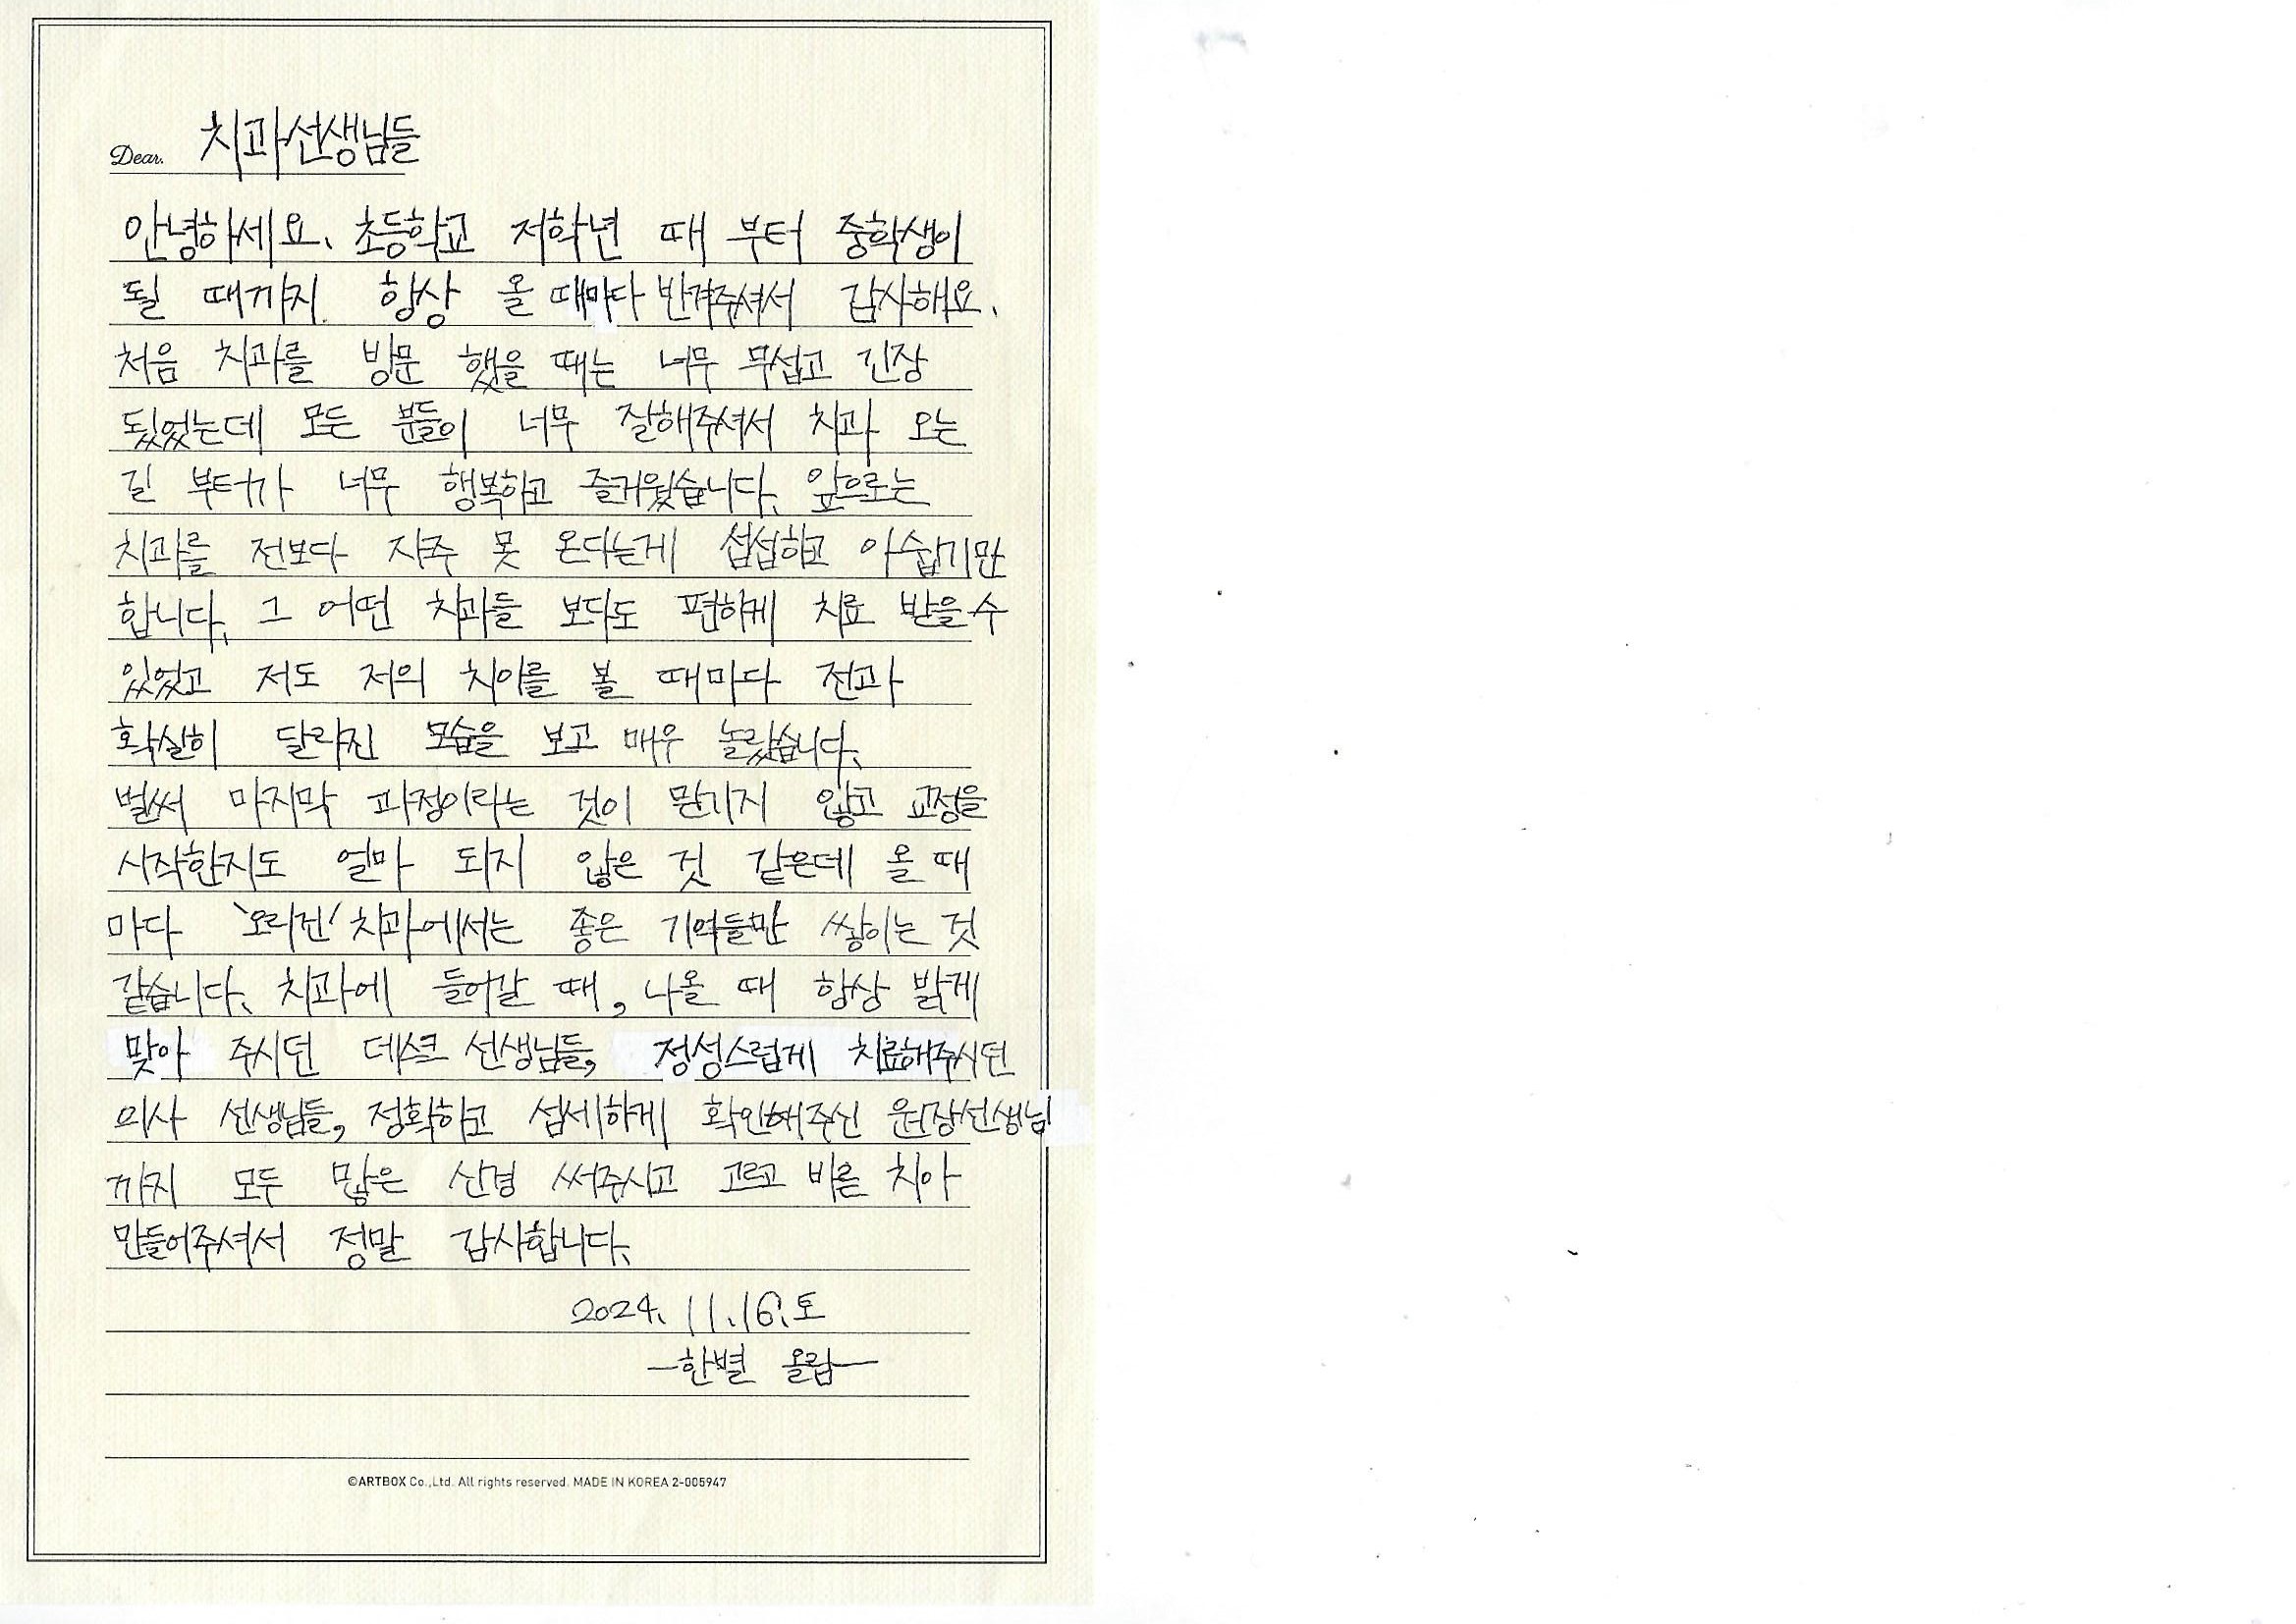 Dear. 치과선생님들
안녕하세요. 초등학교 저학년 때 부터 중학생이
될 때까지 항상 올 때마다 반겨주셔서 감사해요.
처음 치과를 방문 했을 때는 너무 무섭고 긴장
됬었는데 모든 분들이 너무 잘해주셔서 치과 오는
길 부터가 너무 행복하고 즐거웠습니다. 앞으로는
치과를 전보다 자주 못 온다는게 섭섭하고 아쉽기만
합니다. 그 어떤 치과들 보다도 편하게 치료 받을 수
있었고 저도 저의 치아를 볼 때마다 전과
확실히 달라진 모습을 보고 매우 놀랐습니다.
벌써 마지막 과정이라는 것이 믿기지 않고 교정을
시작한지도 얼마 되지 않은 것 같은데 올 때
마다 '오리진' 치과에서는 좋은 기억들만 쌓이는 것
같습니다. 치과에 들어갈 때, 나올 때 항상 밝게
맞아 주시던 데스크 선생님들, 정성스럽게 치료해주시던
의사 선생님들, 정확하고 섬세하게 확인해주신 원장선생님
까지 모두 많은 신경 써주시고 고르고 바른 치아
만들어주셔서 정말 감사합니다.
2024. 11. 16. 토
-한별 올림-
©ARTBOX Co.,Ltd. All rights reserved. MADE IN KOREA 2-005947